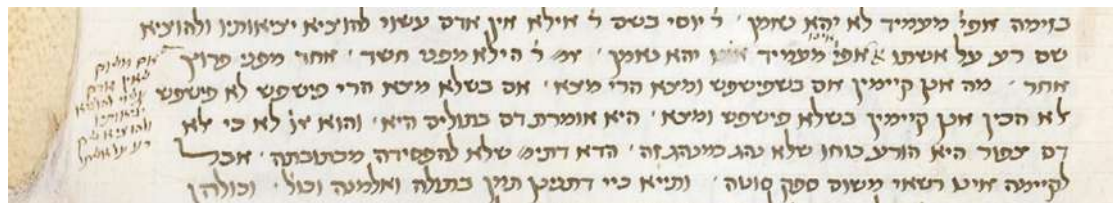 בזימה אפי׳ מעמיד לא יהא נאמן ׳ ר׳ יוסי בשם ר׳ אילא אין אדם עשוי להוציא יציאותיו ולהוציא
שם רע על אשתו אפי׳ מעמיד יהא נאמן ׳ ר׳ הילא מפני חשד ׳ אחר מפני פרוץ
אחר ׳ מה אנן קיימין אם בשפישפש ומצא הרי מצא ׳ אם בשלא מצא הרי פישפש לא פישפש
לא הכין אנן קיימין בשלא פישפש ומצא ׳ היא אומרת דם בתולים היא ׳ והוא לא כי לא
דם צפור היא הורע כוחו שלא נהג כמנהג זה ׳ הדא דתימ׳ שלא להפסידה מכתובתה ׳ אבל
לקיימה אינו רשאי משום ספק סוטה ׳ ותייא כיי דתנינן תנין בתולה ואלמנה וכול׳ ׳ וכולהן
שאין אדם
עשוי להוציא
יציאותיו
ולהוציא שם
רע על אשתו